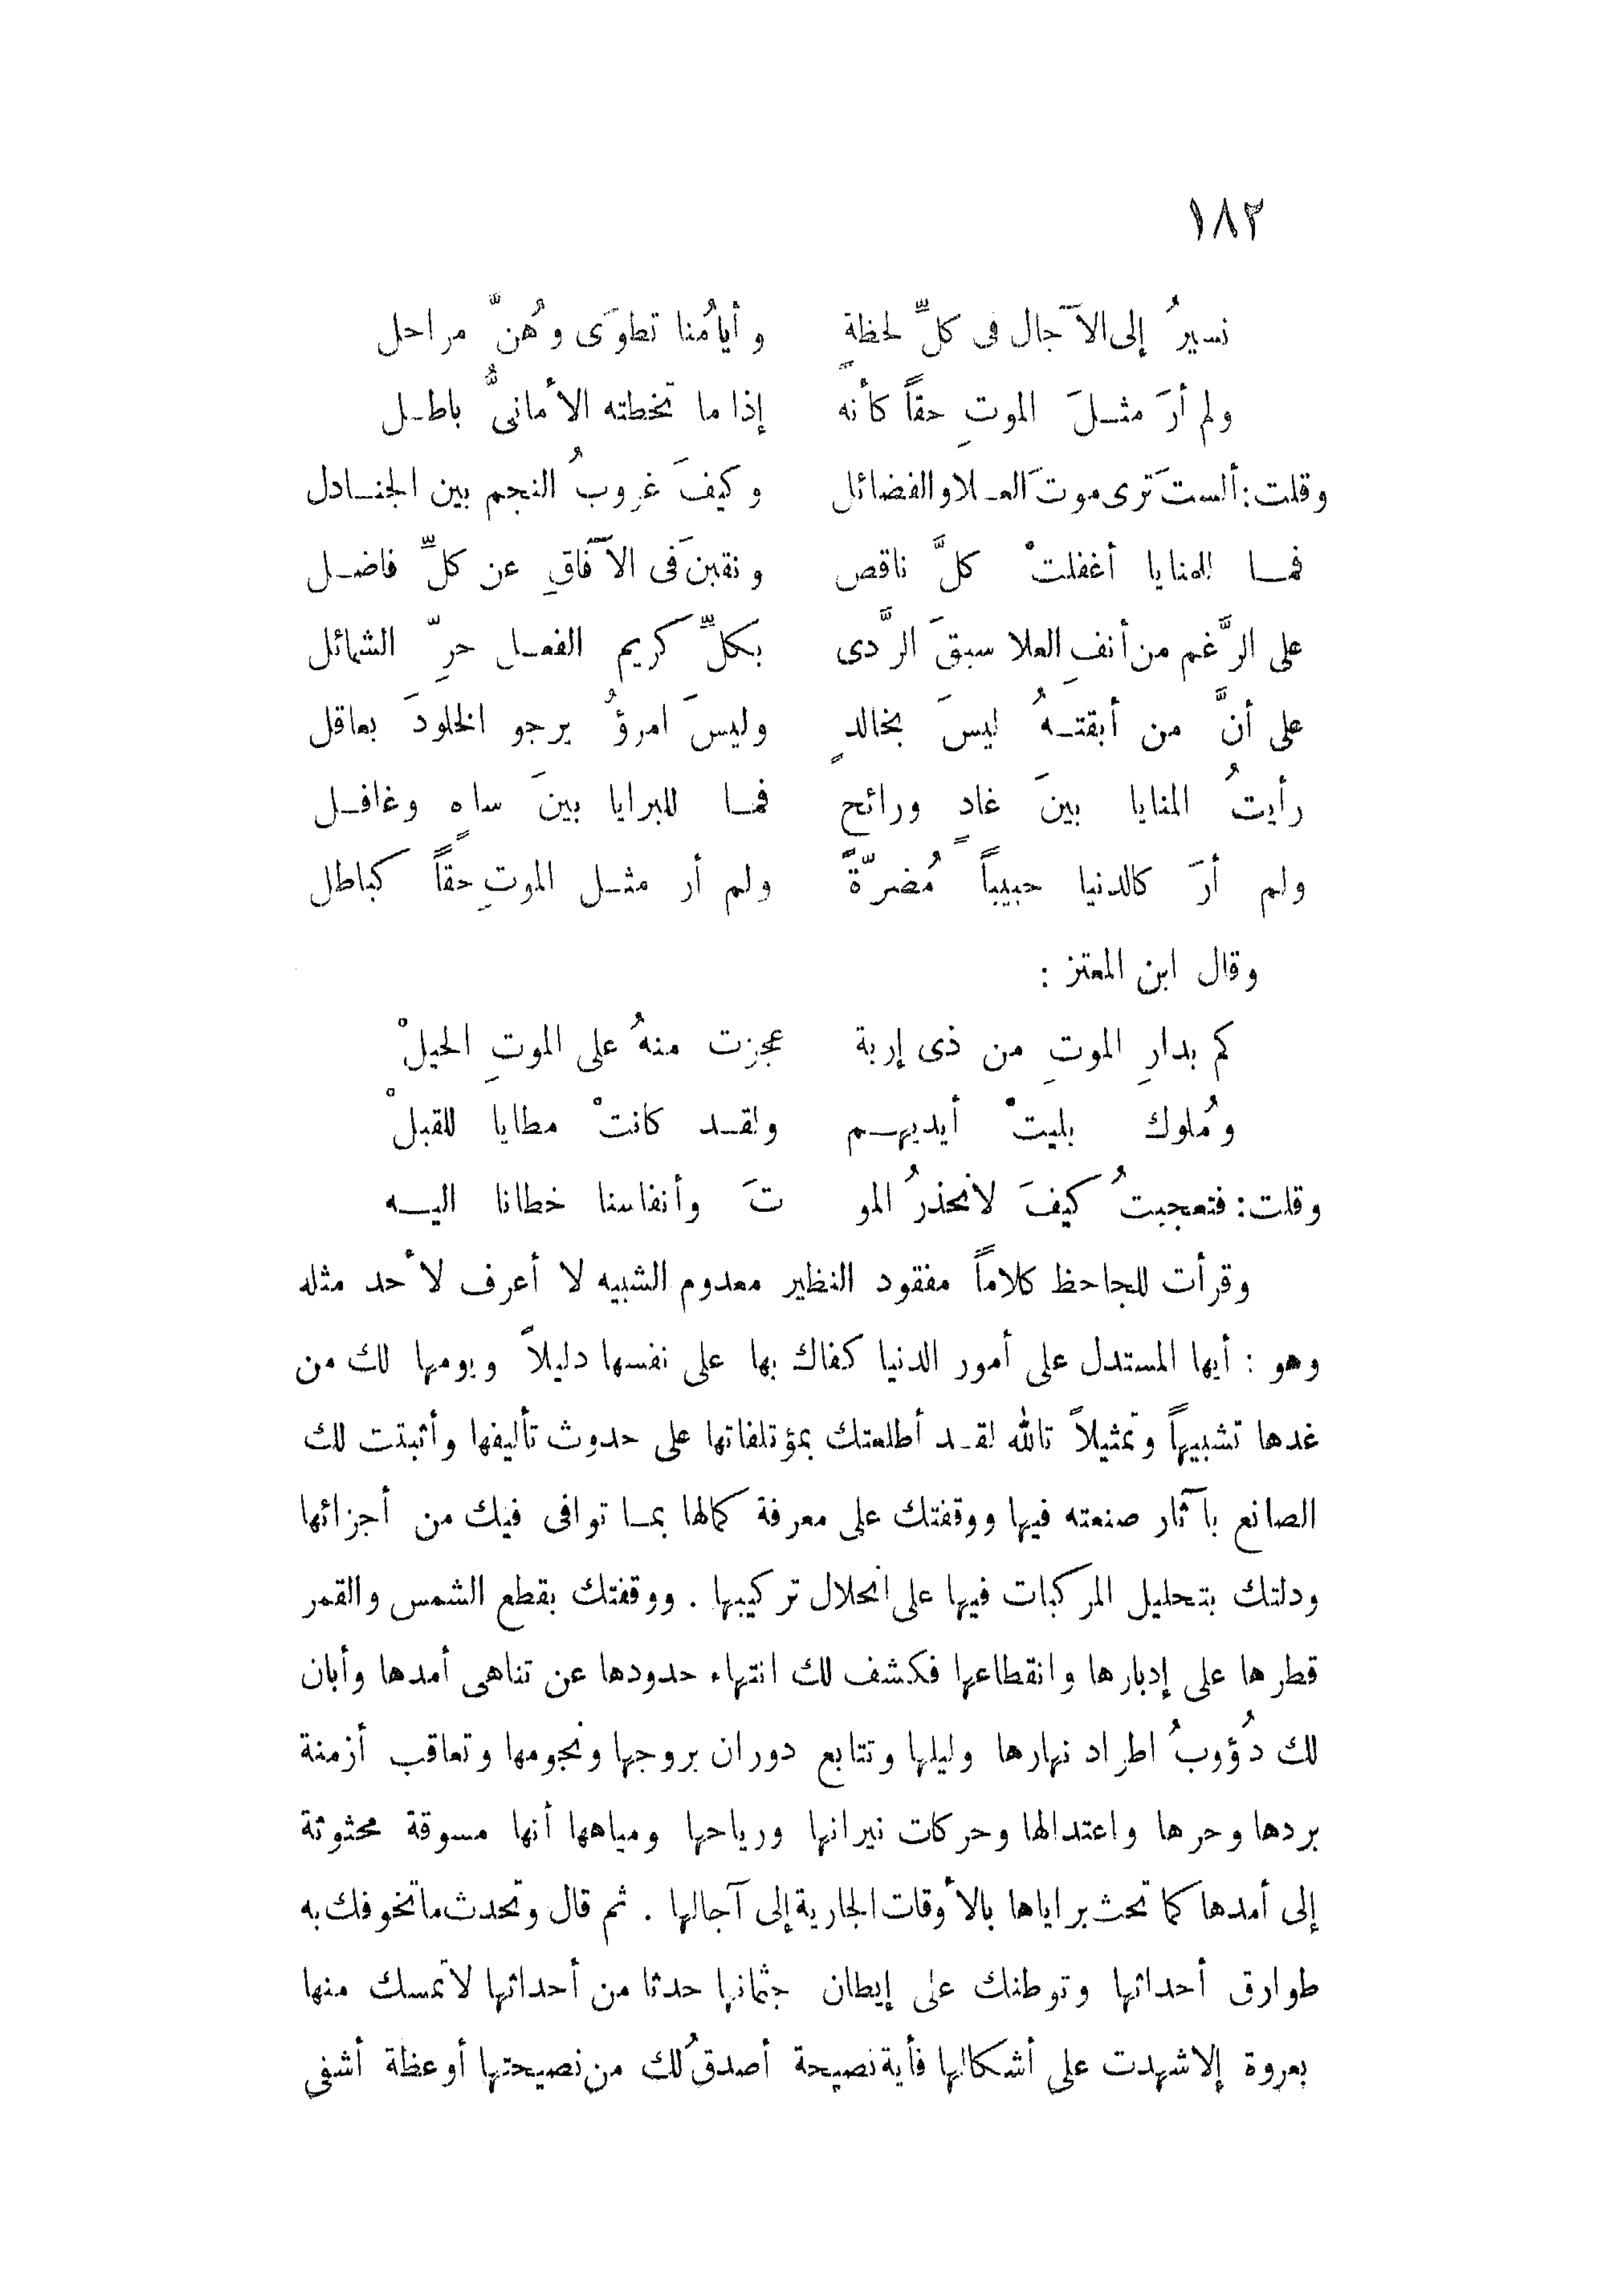 ١٨٢
نسيرُ إلى الآجال فى كلِّ لحظةٍ وأيامُنا تطوَى وهُنَّ مراحل
ولم أرَ مثلَ الموتِ حقاً كأنه إذا ما تخطته الأمانىُّ باطل
وقلت: ألستَ ترى موتَ العلا والفضائل وكيفَ غروبُ النجم بين الجنادل
فما للمنايا أغفلتْ كلَّ ناقص ونقبنَ فى الآفاقِ عن كلِّ فاضل
على الرَّغم من أنفِ العلا سبقَ الرَّدى بكلِّ كريم الفعل حرِّ الشمائل
على أنَّ من أبقتهُ ليسَ بخالدٍ وليسَ امرؤُ يرجو الخلودَ بعاقل
رأيتُ المنايا بينَ غادٍ ورائح فما للبرايا بينَ ساهٍ وغافل
ولم أرَ كالدنيا حبيباً مُضرَّةً ولم أر مثل الموتِ حقاً كباطل
وقال ابن المعتز :
كم بدارِ الموتِ من ذى إربة عجزت منهُ على الموتِ الحيلْ
ومُلوك بليتْ أيديهم ولقد كانتْ مطايا للقبلْ
وقلت: فتعجبتُ كيفَ لانحذرُ المو تَ وأنفاسنا خطانا اليه
وقرأت للجاحظ كلاماً مفقود النظير معدوم الشبيه لا أعرف لأحد مثله
وهو : أيها المستدل على أمور الدنيا كفاك بها على نفسها دليلاً ويومها لك من
غدها تشبيهاً وتمثيلاً تالله لقد أطلعتك بمؤتلفاتها على حدوث تأليفها وأثبتت لك
الصانع بآثار صنعته فيها ووقفتك على معرفة كمالها بما توافى فيك من أجزائها
ودلتك بتحليل المركبات فيها على انحلال تركيبها . ووقفتك بقطع الشمس والقمر
قطرها على إدبارها وانقطاعها فكشف لك انتهاء حدودها عن تناهى أمدها وأبان
لك دُؤوبُ اطراد نهارها وليلها وتتابع دوران بروجها ونجومها وتعاقب أزمنة
بردها وحرها واعتدالها وحركات نيرانها ورياحها ومياهها أنها مسوقة محثوثة
إلى أمدها كما تحث براياها بالأوقات الجارية إلى آجالها . ثم قال وتحدث ماتخوفك به
طوارق أحداثها وتوطنك على إيطان جثمانها حدثا من أحداثها لاتمسك منها
بعروة إلا شهدت على أشكالها فأية نصيحة أصدقُ لك من نصيحتها أوعظة أشفى